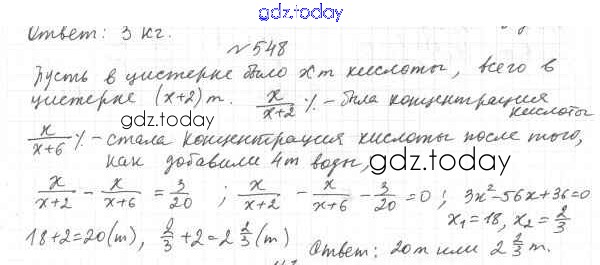 gdz.today
Ответ: 3 кг.
№548
Пусть в цистерне было x т кислоты, всего в
цистерне (x+2) т. x/(x+2) % – была концентрация
кислоты
gdz.today
x/(x+6) % – стала концентрация кислоты после того,
как добавили 4т воды,
gdz.today
x/(x+2) - x/(x+6) = 3/20 ; x/(x+2) - x/(x+6) - 3/20 = 0 ; 3x²-56x+36=0
x₁=18, x₂=2/3
18+2=20(т), 2/3+2=2 2/3(т)
Ответ: 20т или 2 2/3 т.